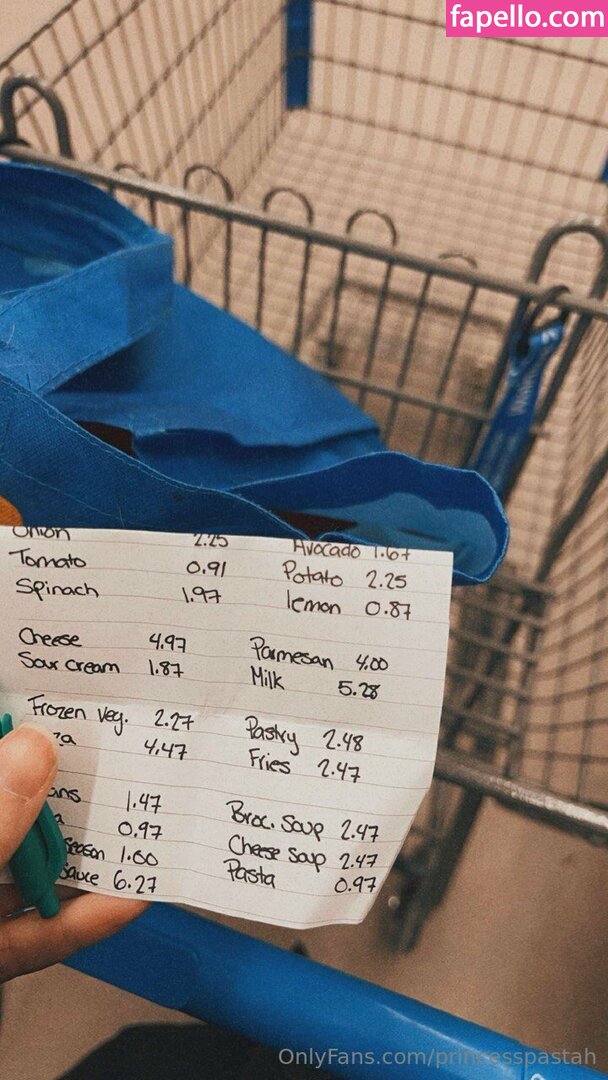 fapello.com
Onion 2.25 Avocado 1.67
Tomato 0.91 Potato 2.25
Spinach 1.97 lemon 0.87
Cheese 4.97 Parmesan 4.00
Sour cream 1.87 Milk 5.28
Frozen veg. 2.27 Pastry 2.48
za 4.47 Fries 2.47
ans 1.47 Broc. Soup 2.47
a 0.97 Cheese soup 2.47
Season 1.60 Pasta 0.97
Sauce 6.27
OnlyFans.com/princesspastah